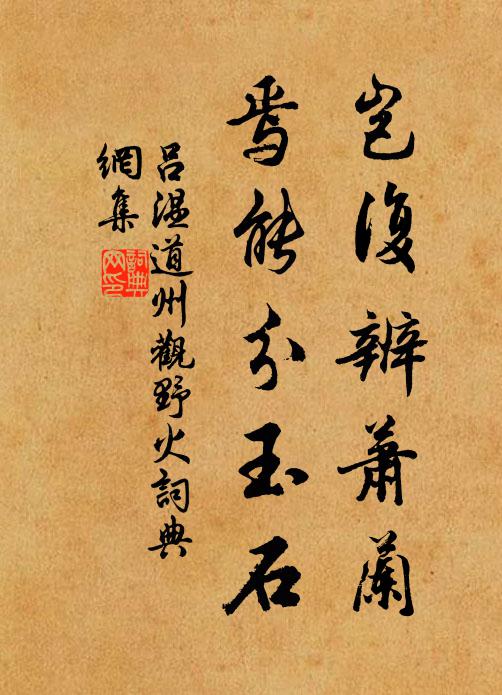 豈復辨蕭蘭
焉能分玉石
呂溫道州觀野火詞典
網集
詞典
网印